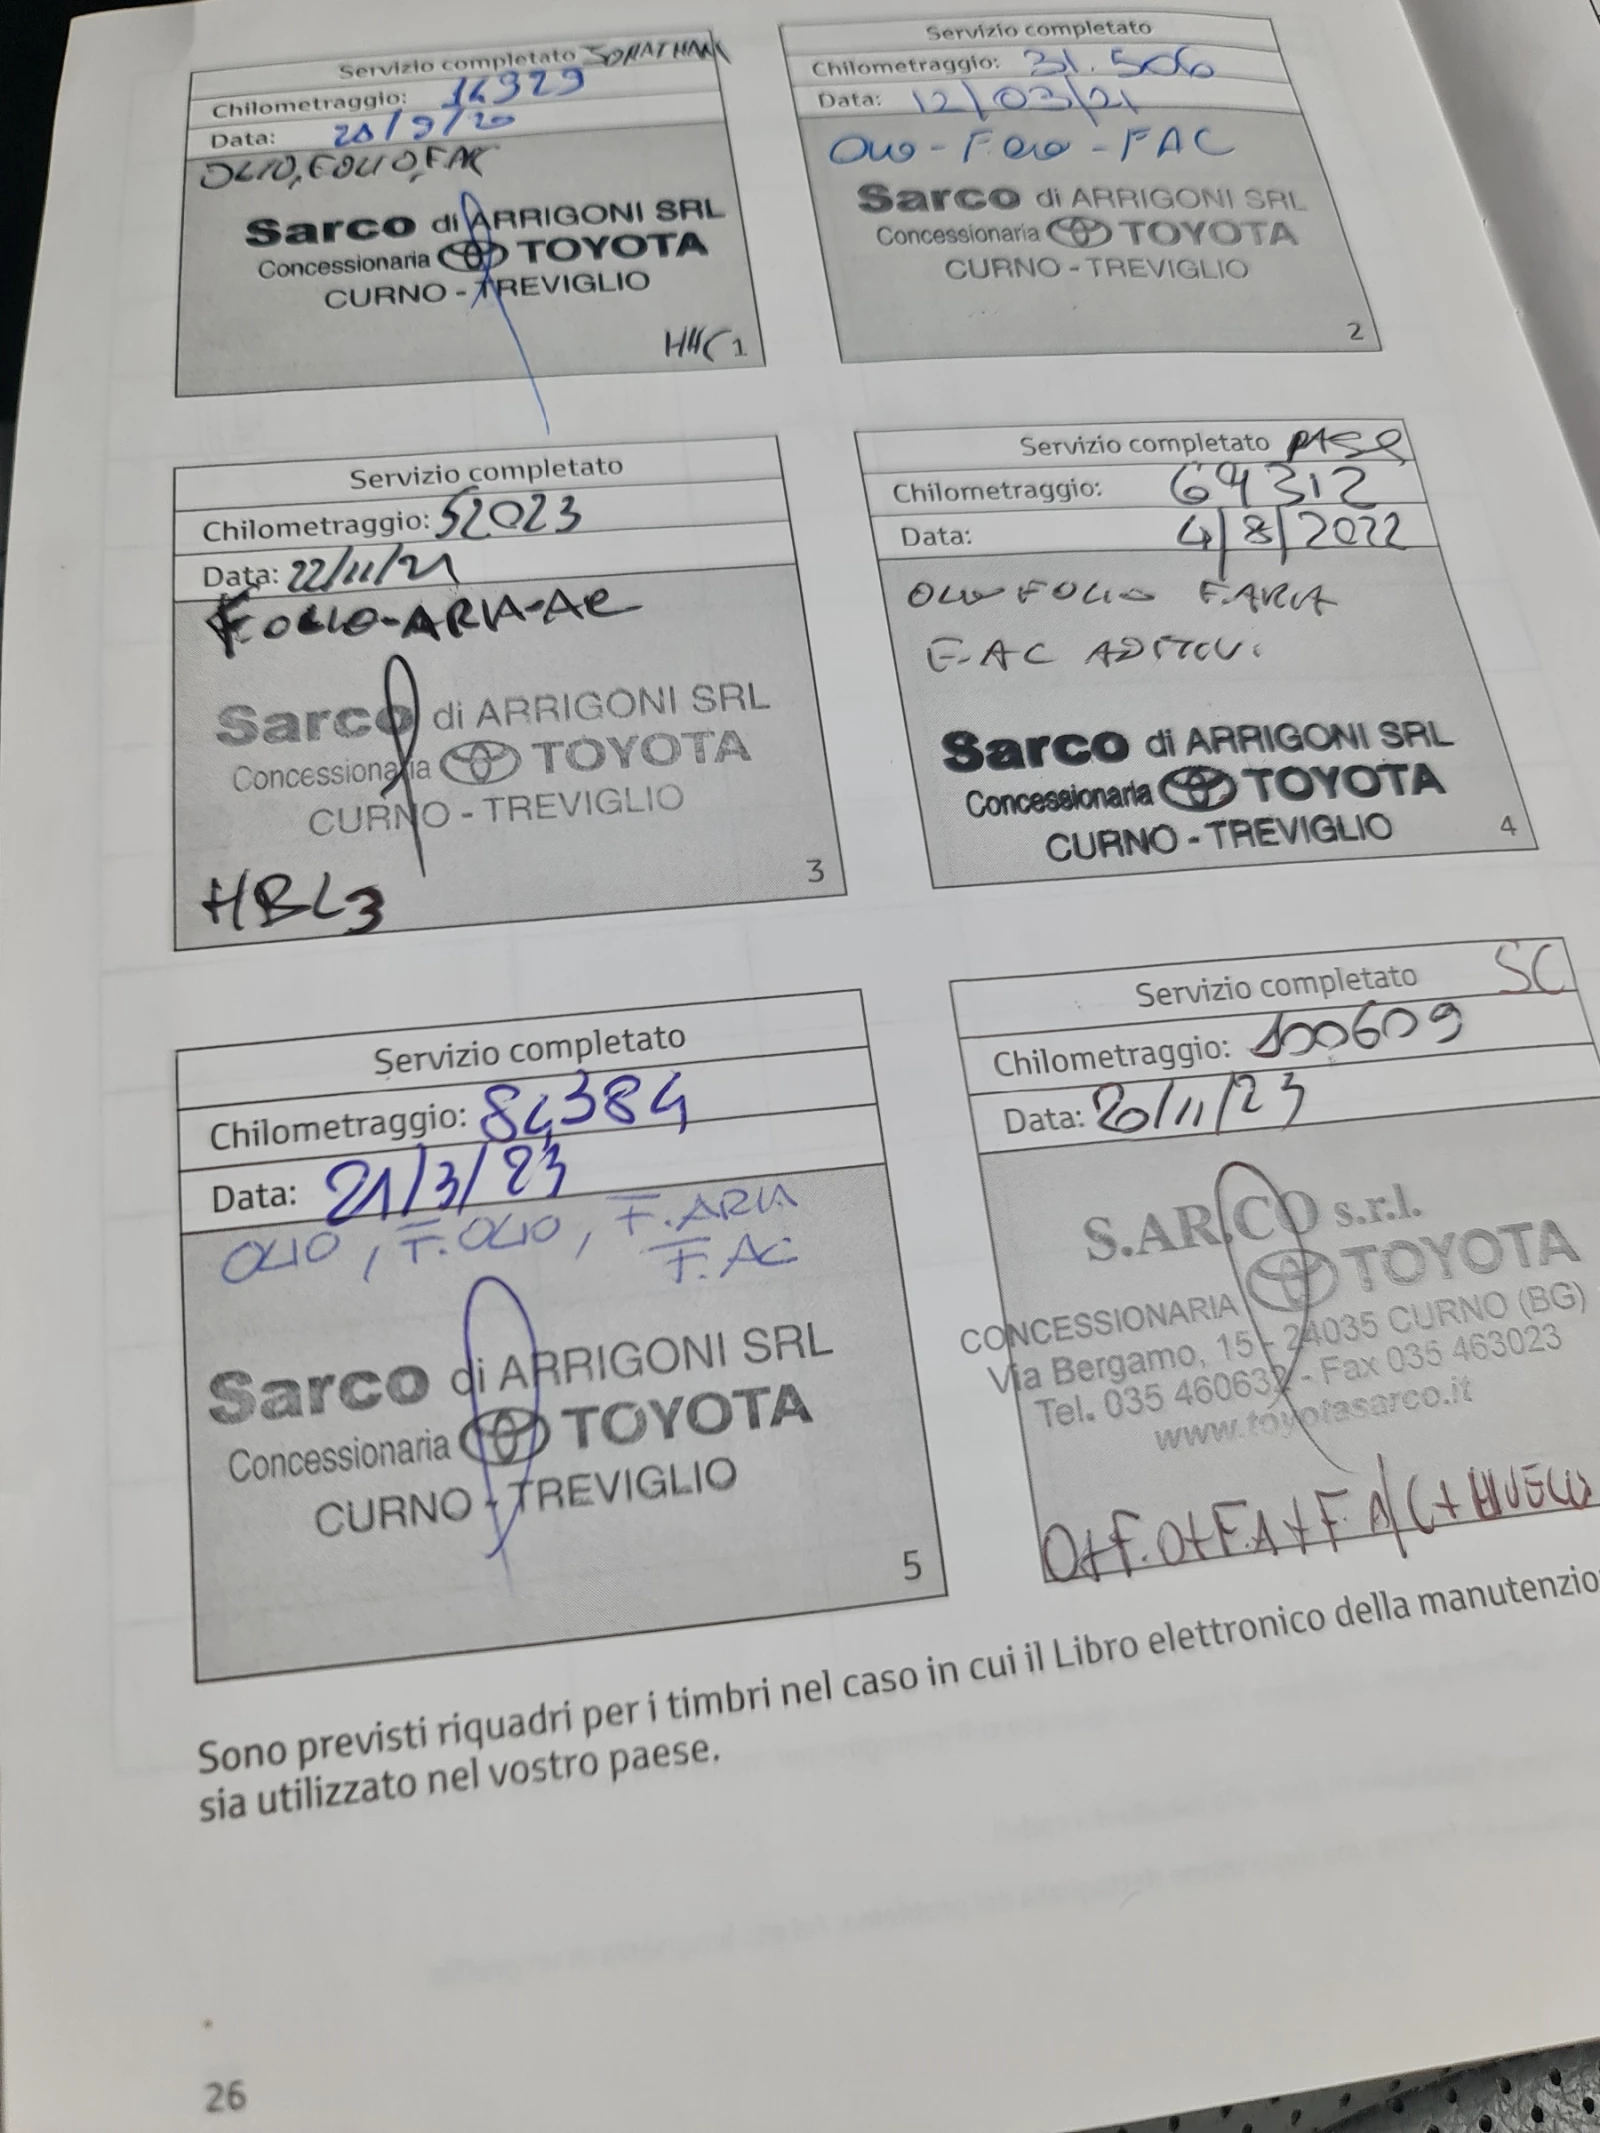 Servizio completato JONATHAN
Chilometraggio: 14929
Data: 21/9/20
OLIO, FOLIO, FAC
Sarco di ARRIGONI SRL
Concessionaria TOYOTA
CURNO - TREVIGLIO
1
Servizio completato
Chilometraggio: 31.506
Data: 12/03/21
OLIO - F.OLIO - FAC
Sarco di ARRIGONI SRL
Concessionaria TOYOTA
CURNO - TREVIGLIO
2
Servizio completato
Chilometraggio: 52023
Data: 22/11/21
FOLIO-ARIA-AC
Sarco di ARRIGONI SRL
Concessionaria TOYOTA
CURNO - TREVIGLIO
3
HBL3
Servizio completato
Chilometraggio: 69312
Data: 4/8/2022
OLIO FOLIO F.ARIA
F.AC
Sarco di ARRIGONI SRL
Concessionaria TOYOTA
CURNO - TREVIGLIO
4
Servizio completato
Chilometraggio: 84384
Data: 21/3/23
OLIO, F.OLIO, F.ARIA
F.AC
Sarco di ARRIGONI SRL
Concessionaria TOYOTA
CURNO - TREVIGLIO
5
Servizio completato SC
Chilometraggio: 100609
Data: 20/11/23
S.AR.CO s.r.l.
TOYOTA
CONCESSIONARIA
Via Bergamo, 15 - 24035 CURNO (BG)
Tel. 035 460632 - Fax 035 463023
www.toyotasarco.it
O+F.O+F.A+F.A/C+
Sono previsti riquadri per i timbri nel caso in cui il Libro elettronico della manutenzio
sia utilizzato nel vostro paese.
26